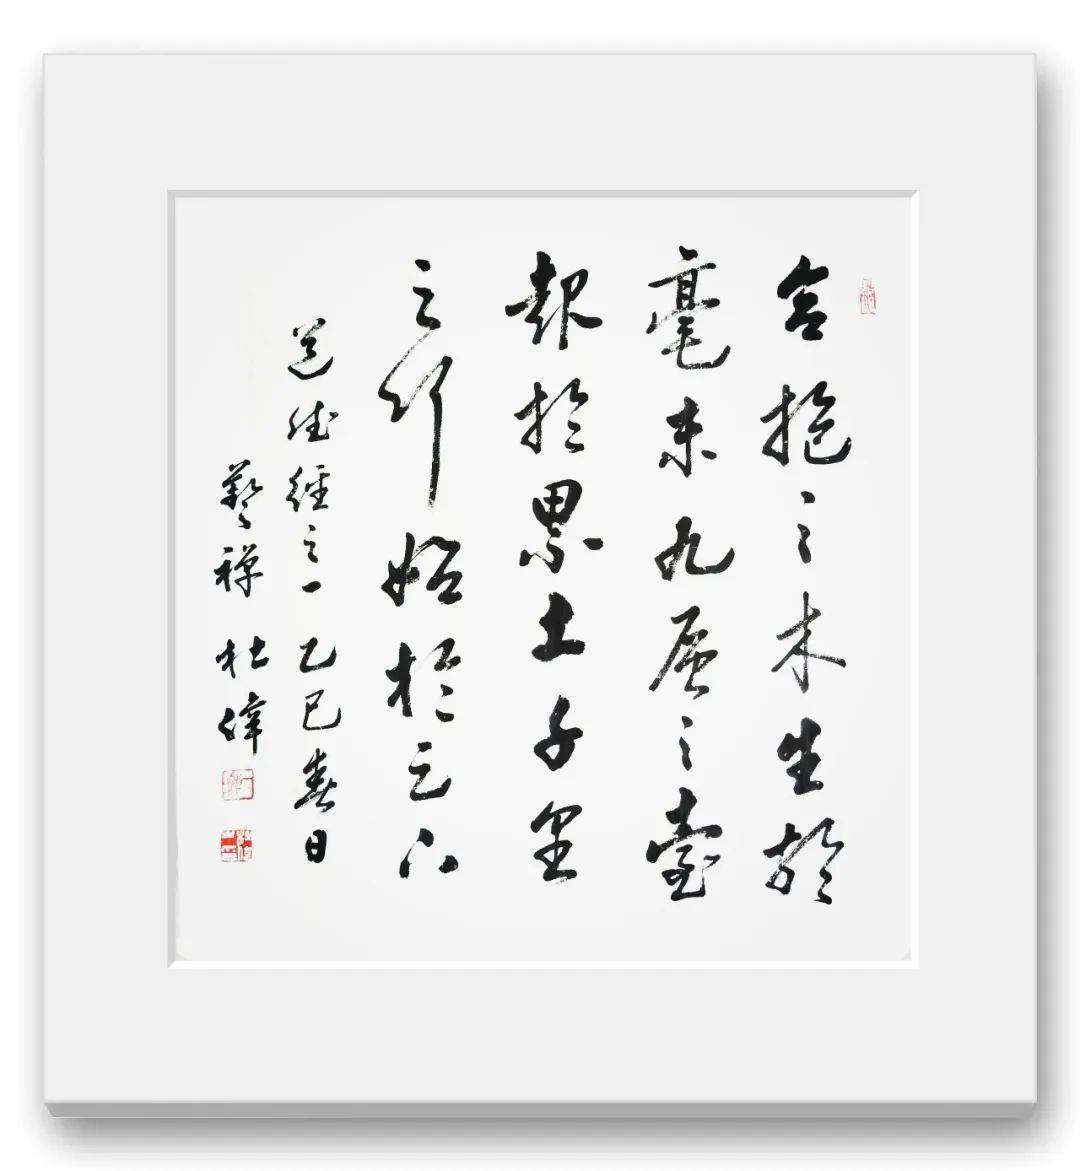 合抱之木生於
毫末九層之臺
起於累土千里
之行始於足下
道德經之一 乙巳春日
藝禪 杜偉